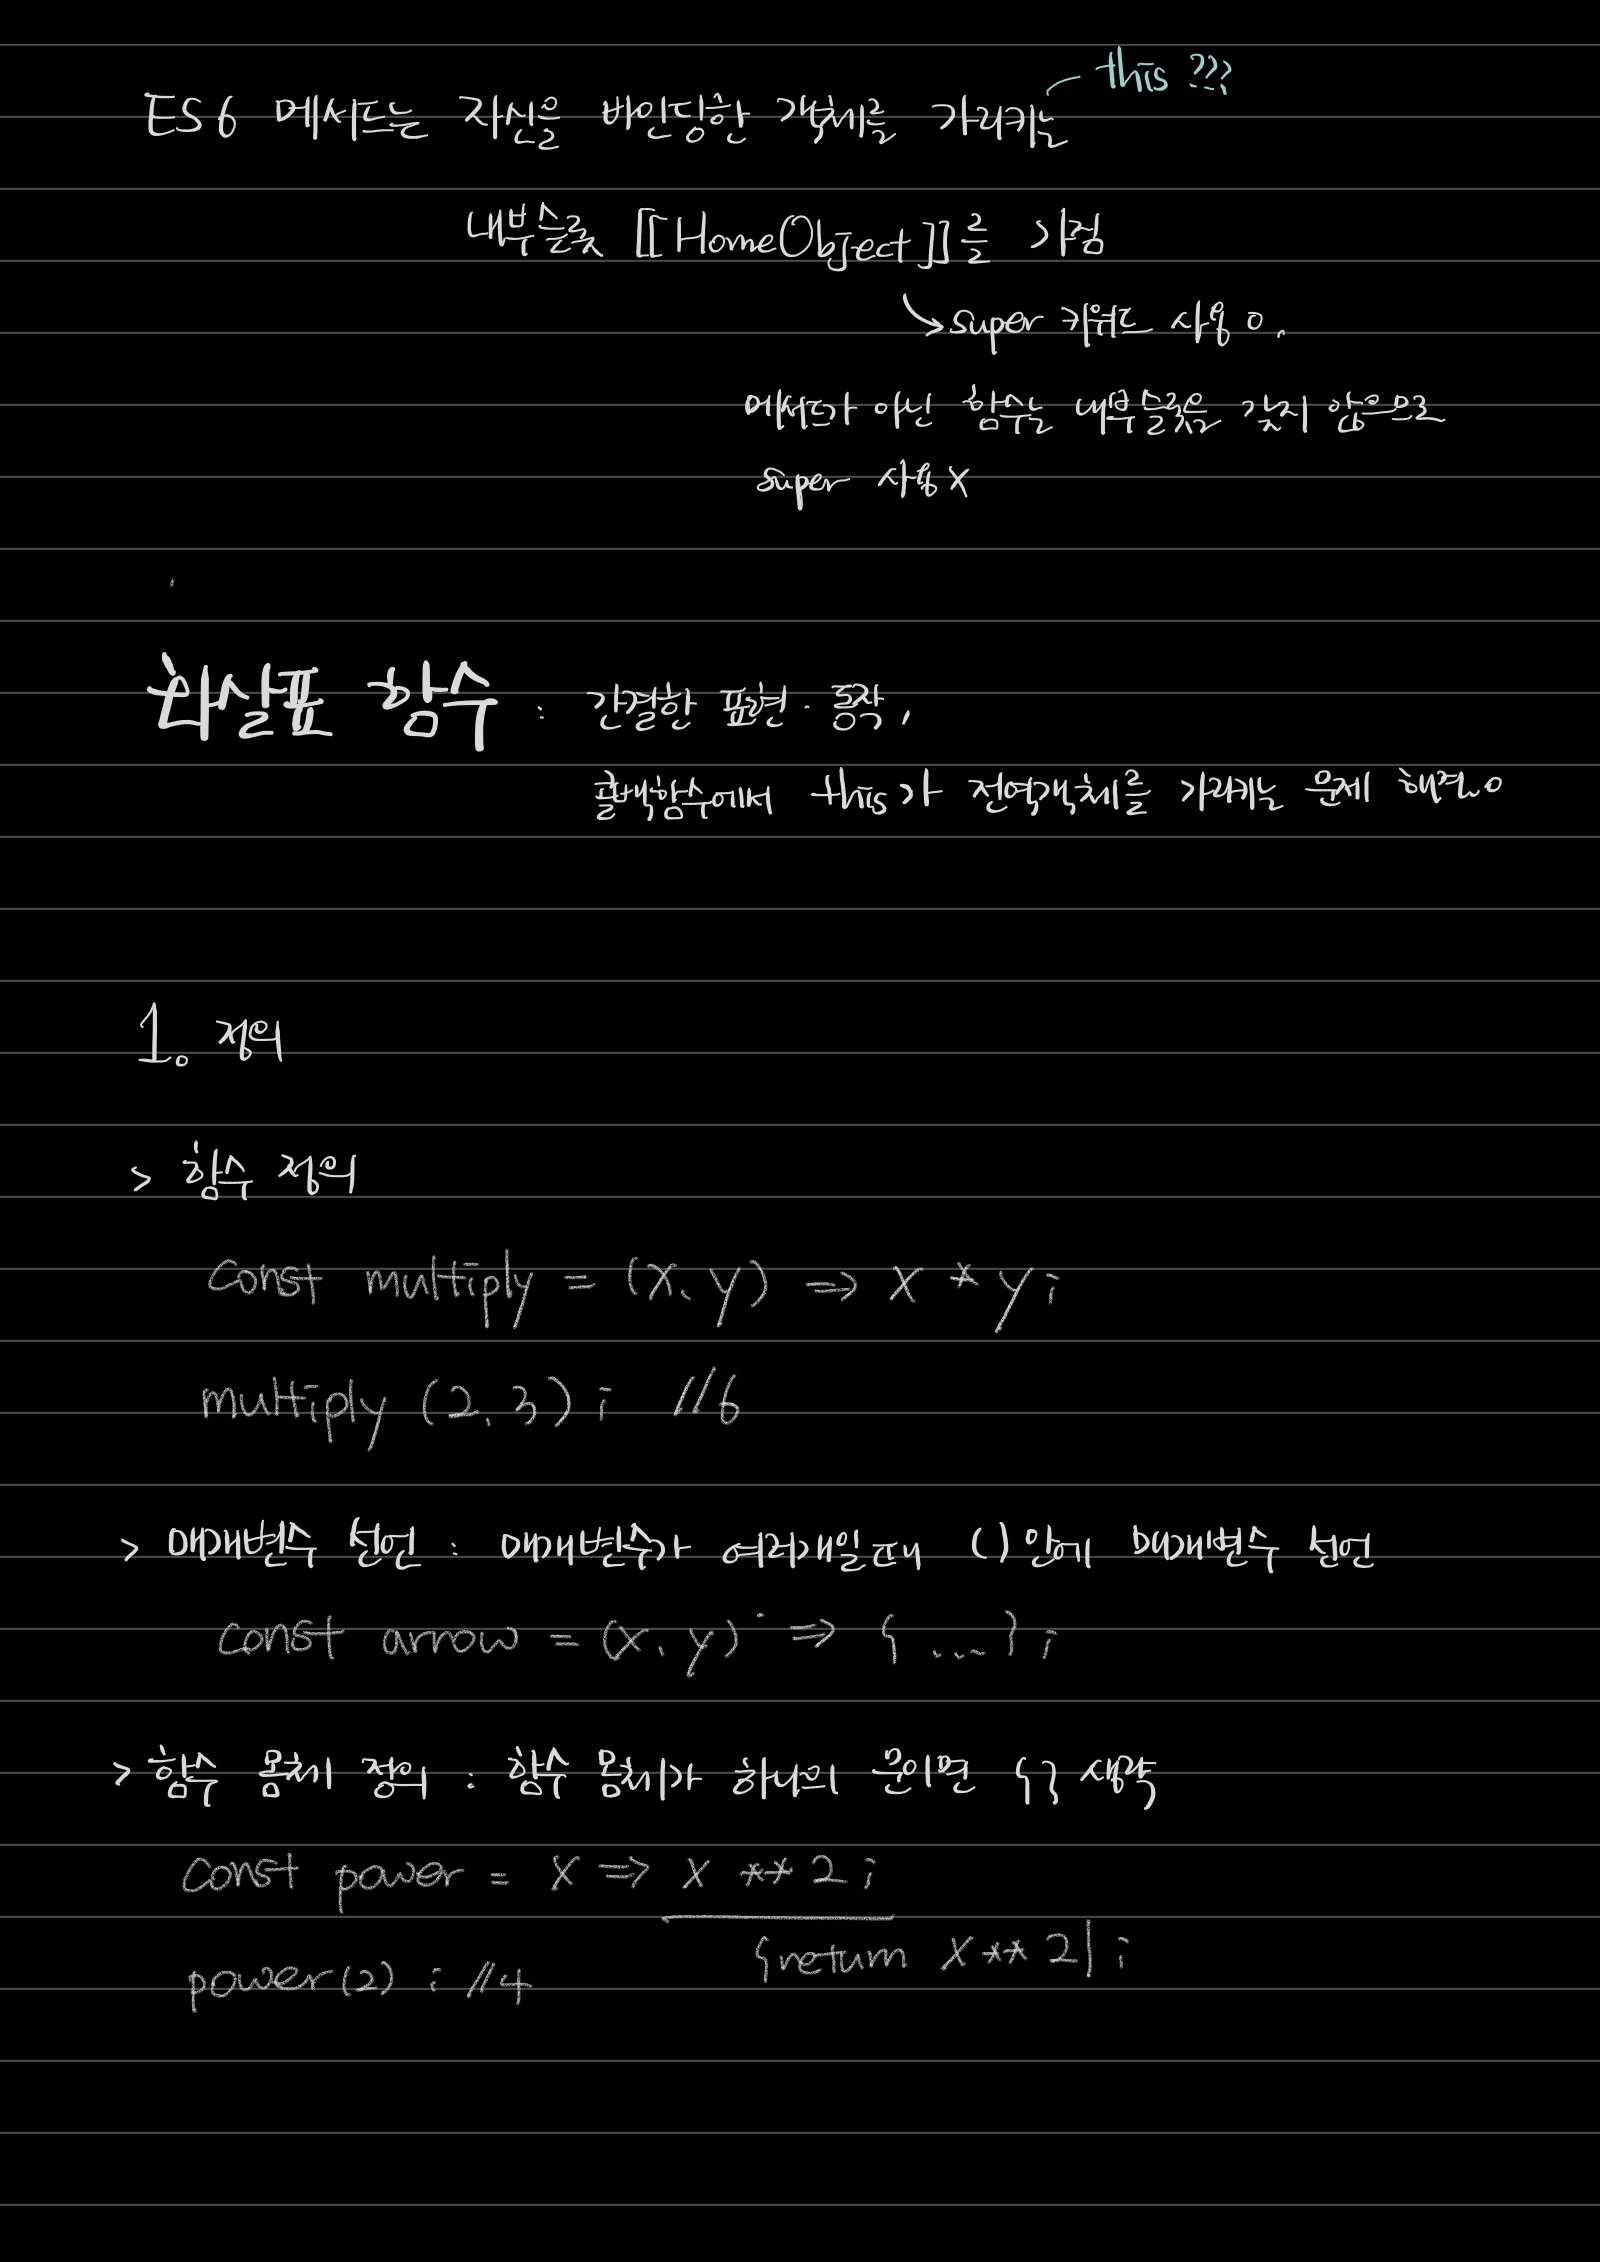 this ???
ES6 메서드는 자신을 바인딩한 객체를 가리키는
내부슬롯 [[HomeObject]]를 가짐
super 키워드 사용 o.
메서드가 아닌 함수는 내부슬롯을 갖지 않으므로
super 사용 X
화살표 함수 : 간결한 표현·동작,
콜백함수에서 this가 전역객체를 가리키는 문제 해결o
1. 정의
> 함수 정의
const multiply = (x, y) => x * y;
multiply (2, 3); //6
> 매개변수 선언 : 매개변수가 여러개일때 ()안에 매개변수 선언
const arrow = (x, y) => { ... };
> 함수 몸체 정의 : 함수 몸체가 하나의 문이면 {} 생략
const power = x => x ** 2;
{return x ** 2};
power(2); //4